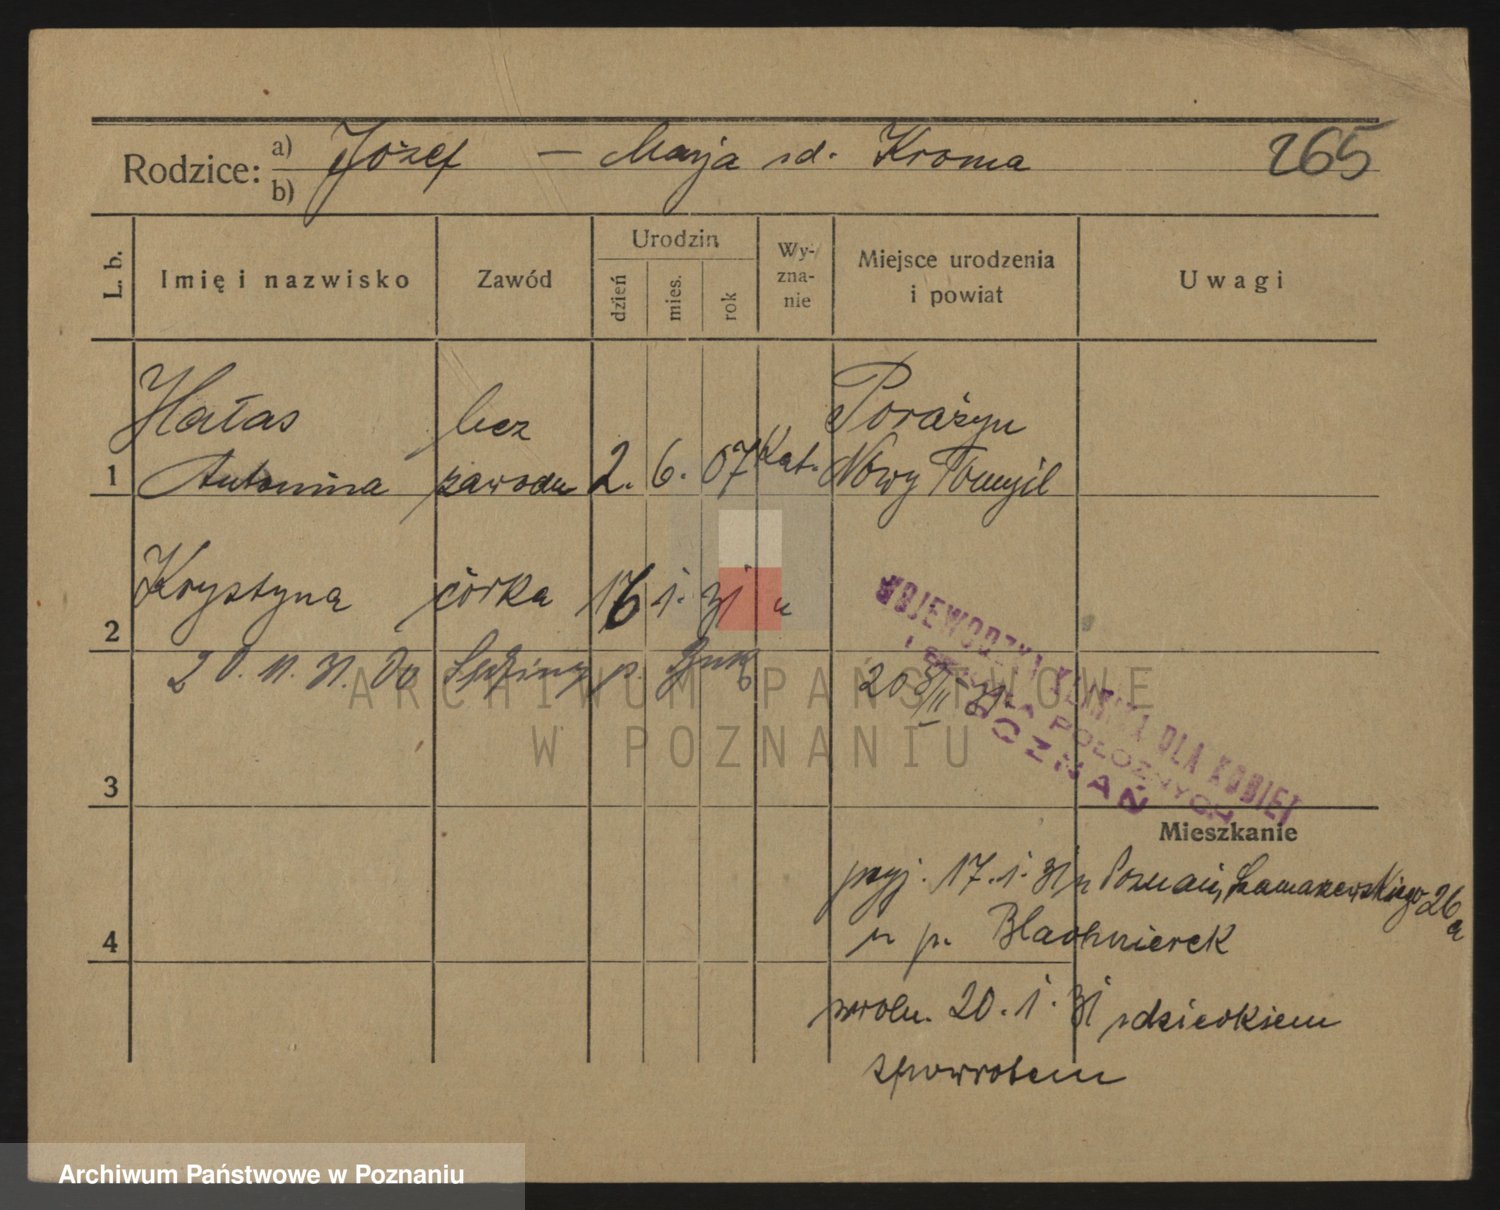 265
Rodzice: a) Józef — Marja zd. Kroma
b)
L. b. Imię i nazwisko Zawód Urodzin dzień mies. rok Wy-zna-nie Miejsce urodzenia i powiat Uwagi
Hałas bez Porażyn
1 Antonina zawodu 2. 6. 07 Kat. Nowy Tomyśl
2 Krystyna córka 16 1. 31 u
20. 11. 31. Do p. 20
WOJEWÓDZKA KLINIKA DLA KOBIET
I SZKOŁA POŁOŻNYCH
POZNAŃ
ARCHIWUM PAŃSTWOWE
W POZNANIU
3
Mieszkanie
przyj. 17. 1. 31 z Poznań, Szamarzewskiego 26a
4 u p. Blachnierek
zwoln. 20. 1. 31 z dzieckiem
zpowrotem
Archiwum Państwowe w Poznaniu